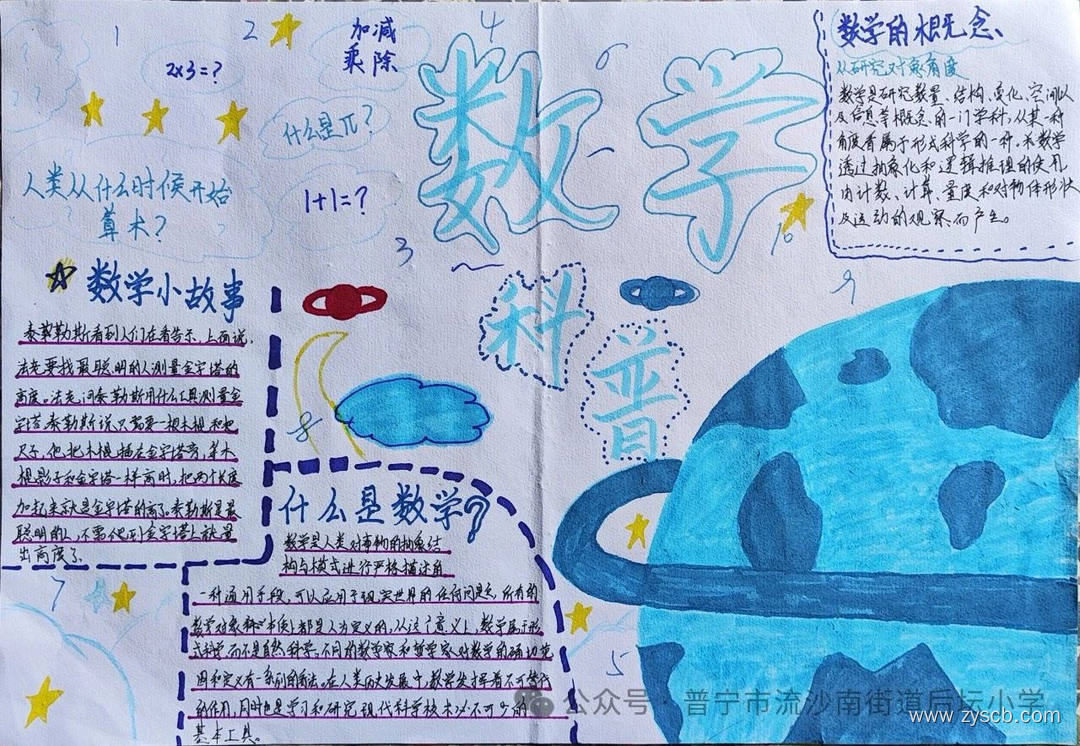 1
2
加减
乘除
4
6
2×3=?
什么是π?
1+1=?
人类从什么时候开始
算术?
3
数学
科普
10
9
数学的概念
从研究对象角度
数学是研究数量、结构、变化、空间以
及信息等概念的一门学科,从某一种
角度看属于形式科学的一种,
透过抽象化和逻辑推理的使用
由计数、计算、量度和对物体形状
及运动的观察而产生。
数学小故事
泰勒勒斯看到人们在看告示,上面说,
法老要找最聪明的人测量金字塔的
高度。法老问泰勒斯用什么工具测量金
字塔,泰勒斯说只需要一根木棍和一把
尺子,他把木棍插在金字塔旁,等木
棍影子和金字塔一样高时,把两个长度
加起来就是金字塔的高了。泰勒斯是最
聪明的人,不需爬到金字塔上就量
出高度了
8
什么是数学?
数学是人类对事物的抽象结
构与模式进行严格描述的
一种通用手段,可以应用于现实世界的任何问题,所有的
数学对象本质上都是人为定义的,从这个意义上,数学属于形
式科学,而不是自然科学。不同的数学家和哲学家对数学的确切范
围和定义有一系列的看法。在人类历史发展中,数学发挥着不可替代
的作用,同时也是学习和研究现代科学技术必不可少的
基本工具。
7
5
公众号·普宁市流沙南街道后坛小学
www.zyscb.com